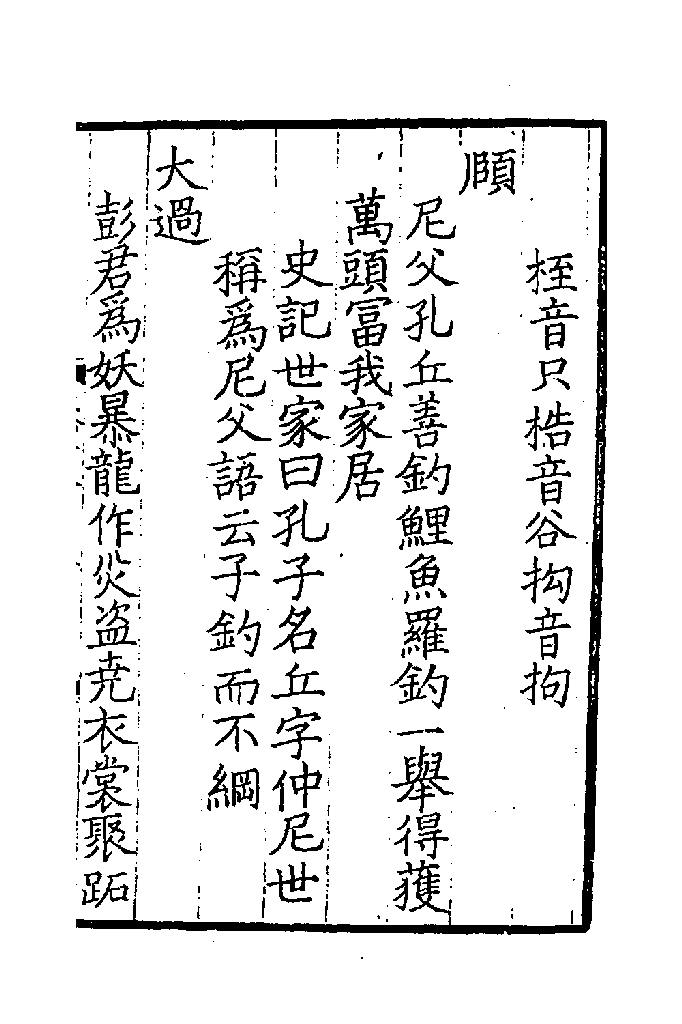 桎音只梏音谷拘音拘
頤
尼父孔丘善釣鯉魚羅釣一舉得獲
萬頭富我家居
史記世家曰孔子名丘字仲尼世
稱爲尼父語云子釣而不綱
大過
彭君爲妖暴龍作災盜堯衣裳聚跖